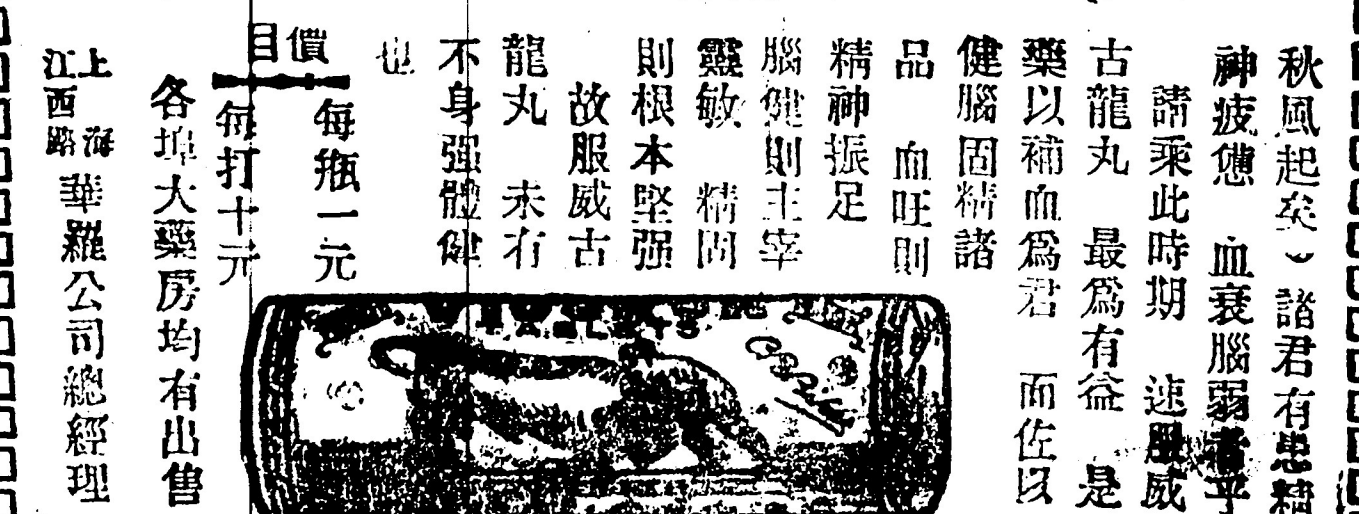 秋風起矣諸君有患精
神疲憊 血衰腦弱者乎
請乘此時期 速服威
古龍丸 最爲有益 是
藥以補血爲君 而佐以
健腦固精諸
品 血旺則
精神振足
腦健則主宰
靈敏 精固
則根本堅强
故服威古
龍丸 未有
不身强體健
也
價目
每瓶一元
每打十元
各埠大藥房均有出售
上海
江西路
華羅公司總經理